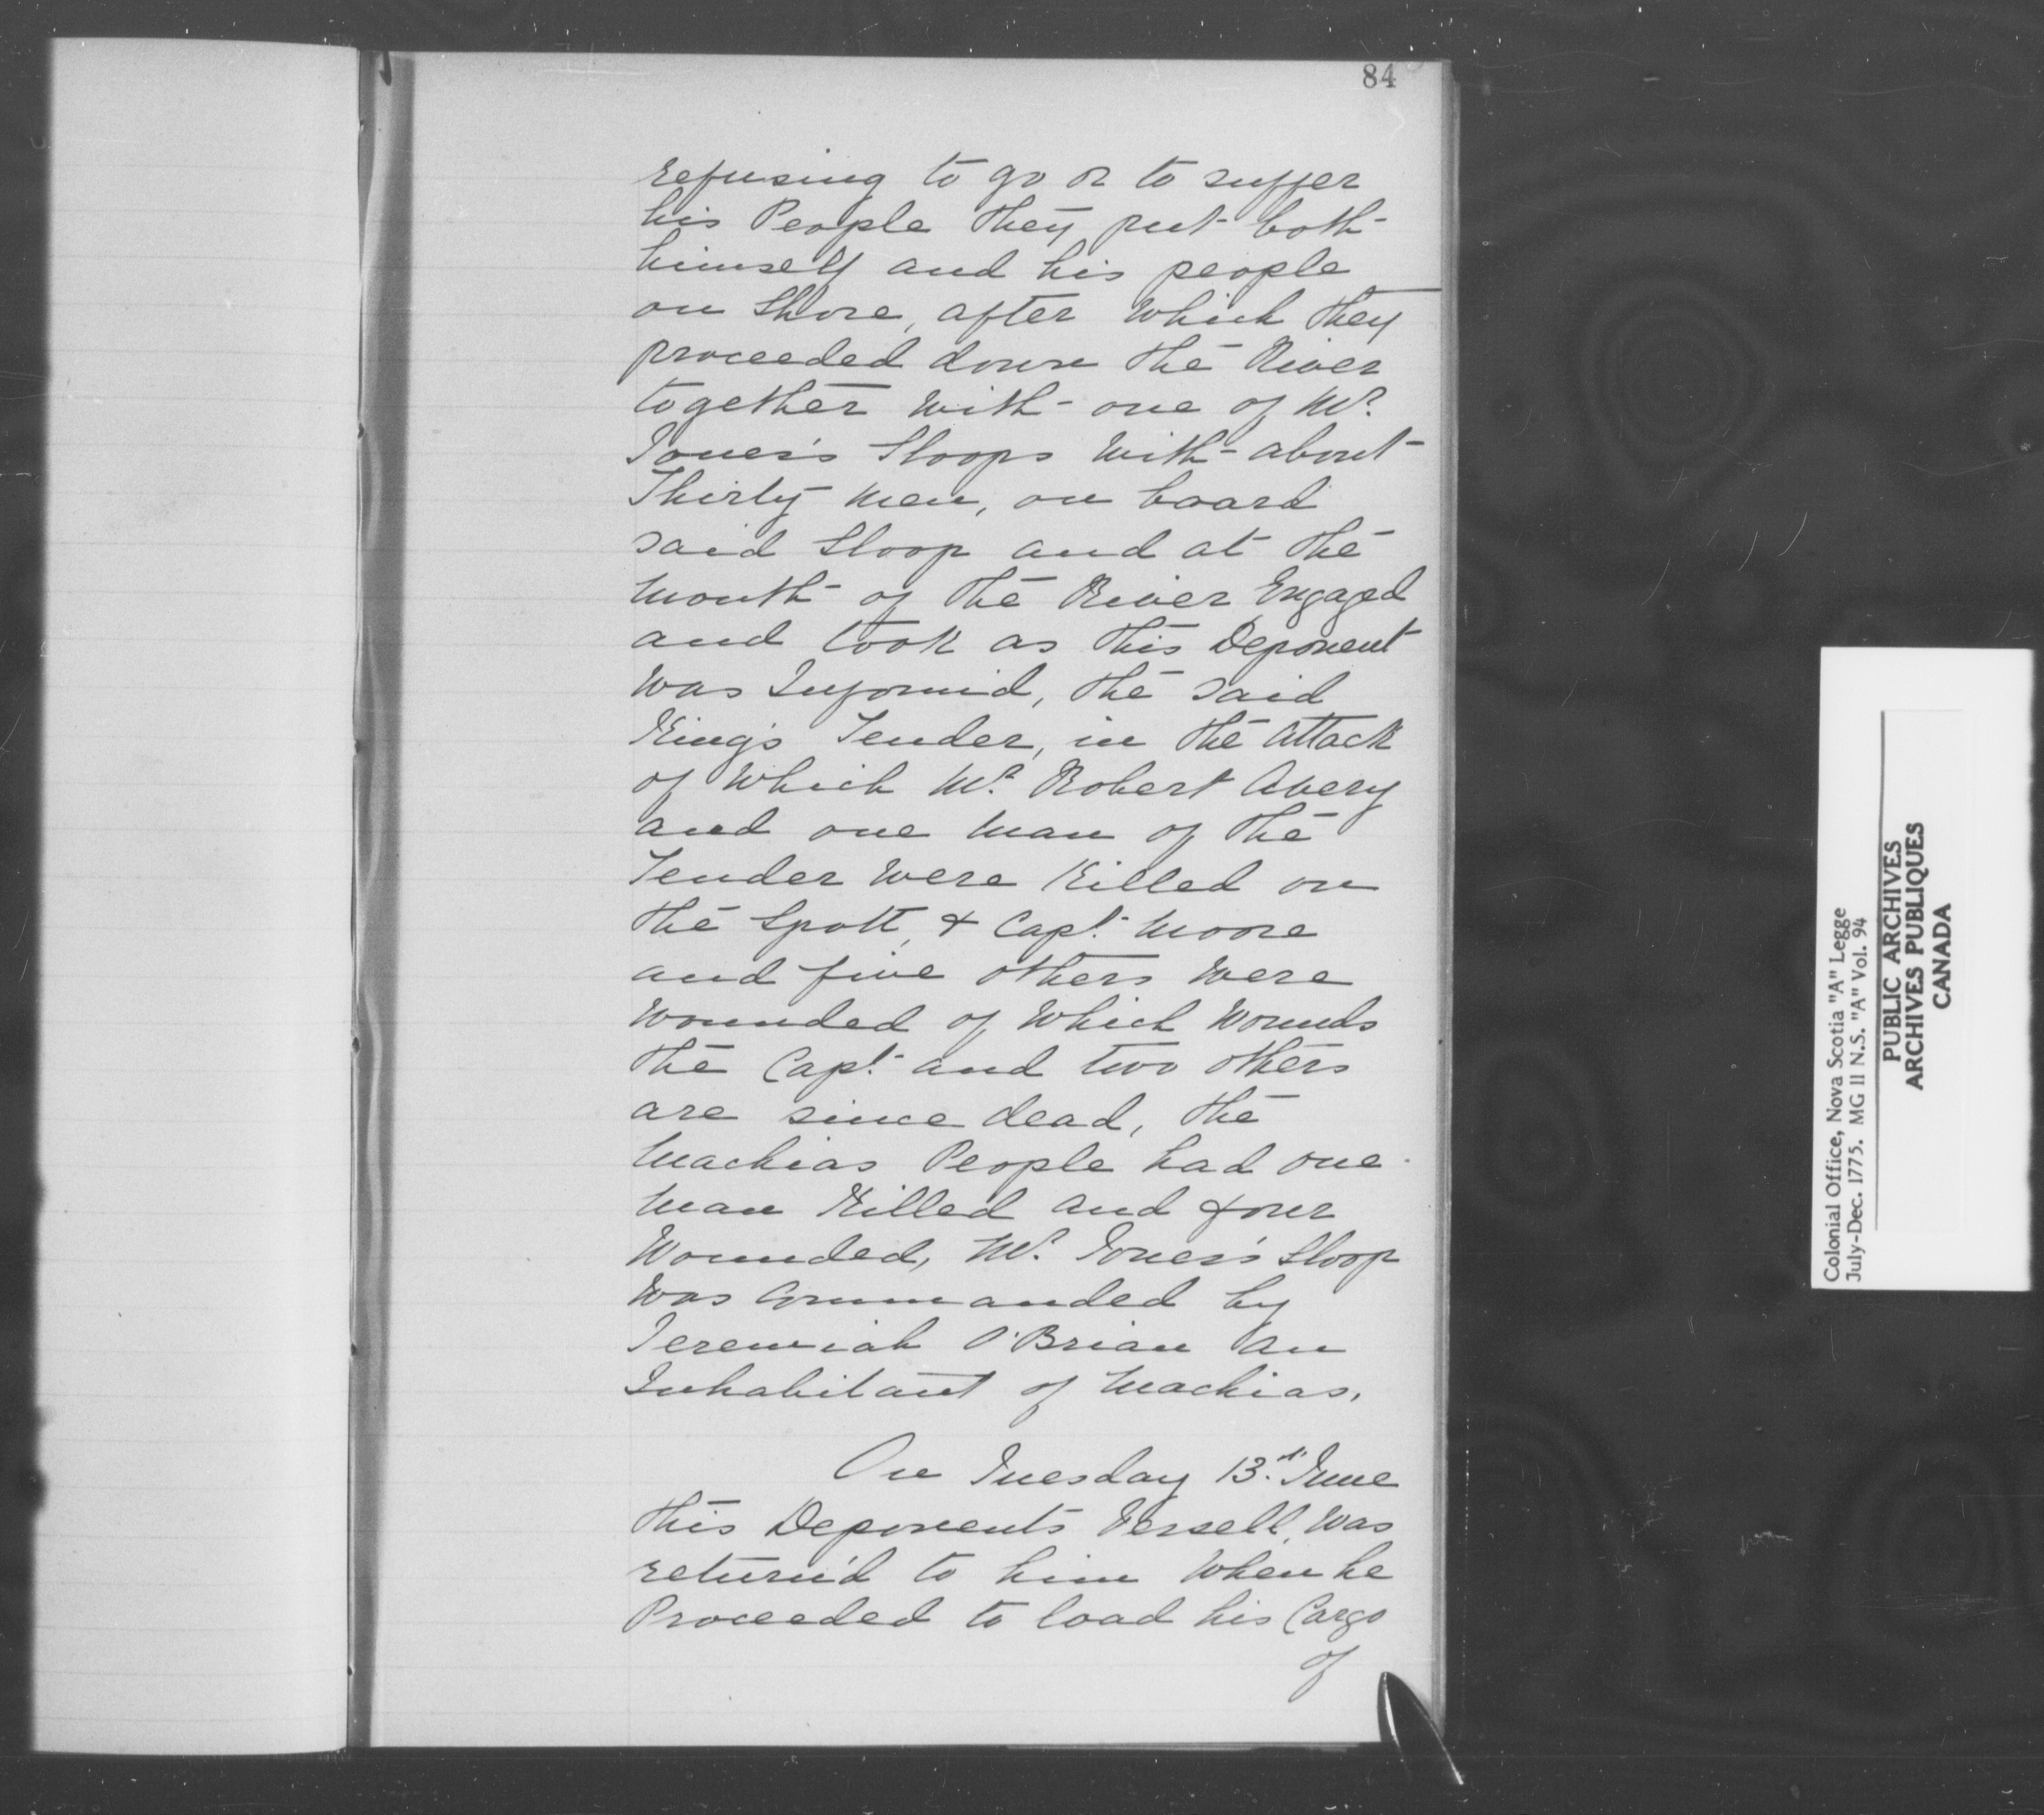 84
refusing to go or to suffer
his People they put both
himself and his people
on Shore, after Which they
proceeded down the River
together With one of Mr.
Jones's Sloops With about
Thirty Men, on board
said Sloop and at the
Mouth of the River Engaged
and took as this Deponent
Was Informid, the said
King's Tender, in the Attack
of Which Mr. Robert Avery
and one Man of the
Tender Were Killed on
the Spott, & Capt. Moore
and five others Were
Wounded of Which Wounds
the Capt. and two others
are since dead, the
Machias People had one
Man Killed and four
Wounded, Mr. Jones's Sloop
Was Commanded by
Jeremiah O'Brian an
Inhabitant of Machias.
On Tuesday 13.th June
this Deponents Vessell, Was
return'd to him When he
Proceeded to load his Cargo
of
Colonial Office, Nova Scotia "A" Legge
July-Dec. 1775. MG 11 N.S. "A" Vol. 94
PUBLIC ARCHIVES
ARCHIVES PUBLIQUES
CANADA